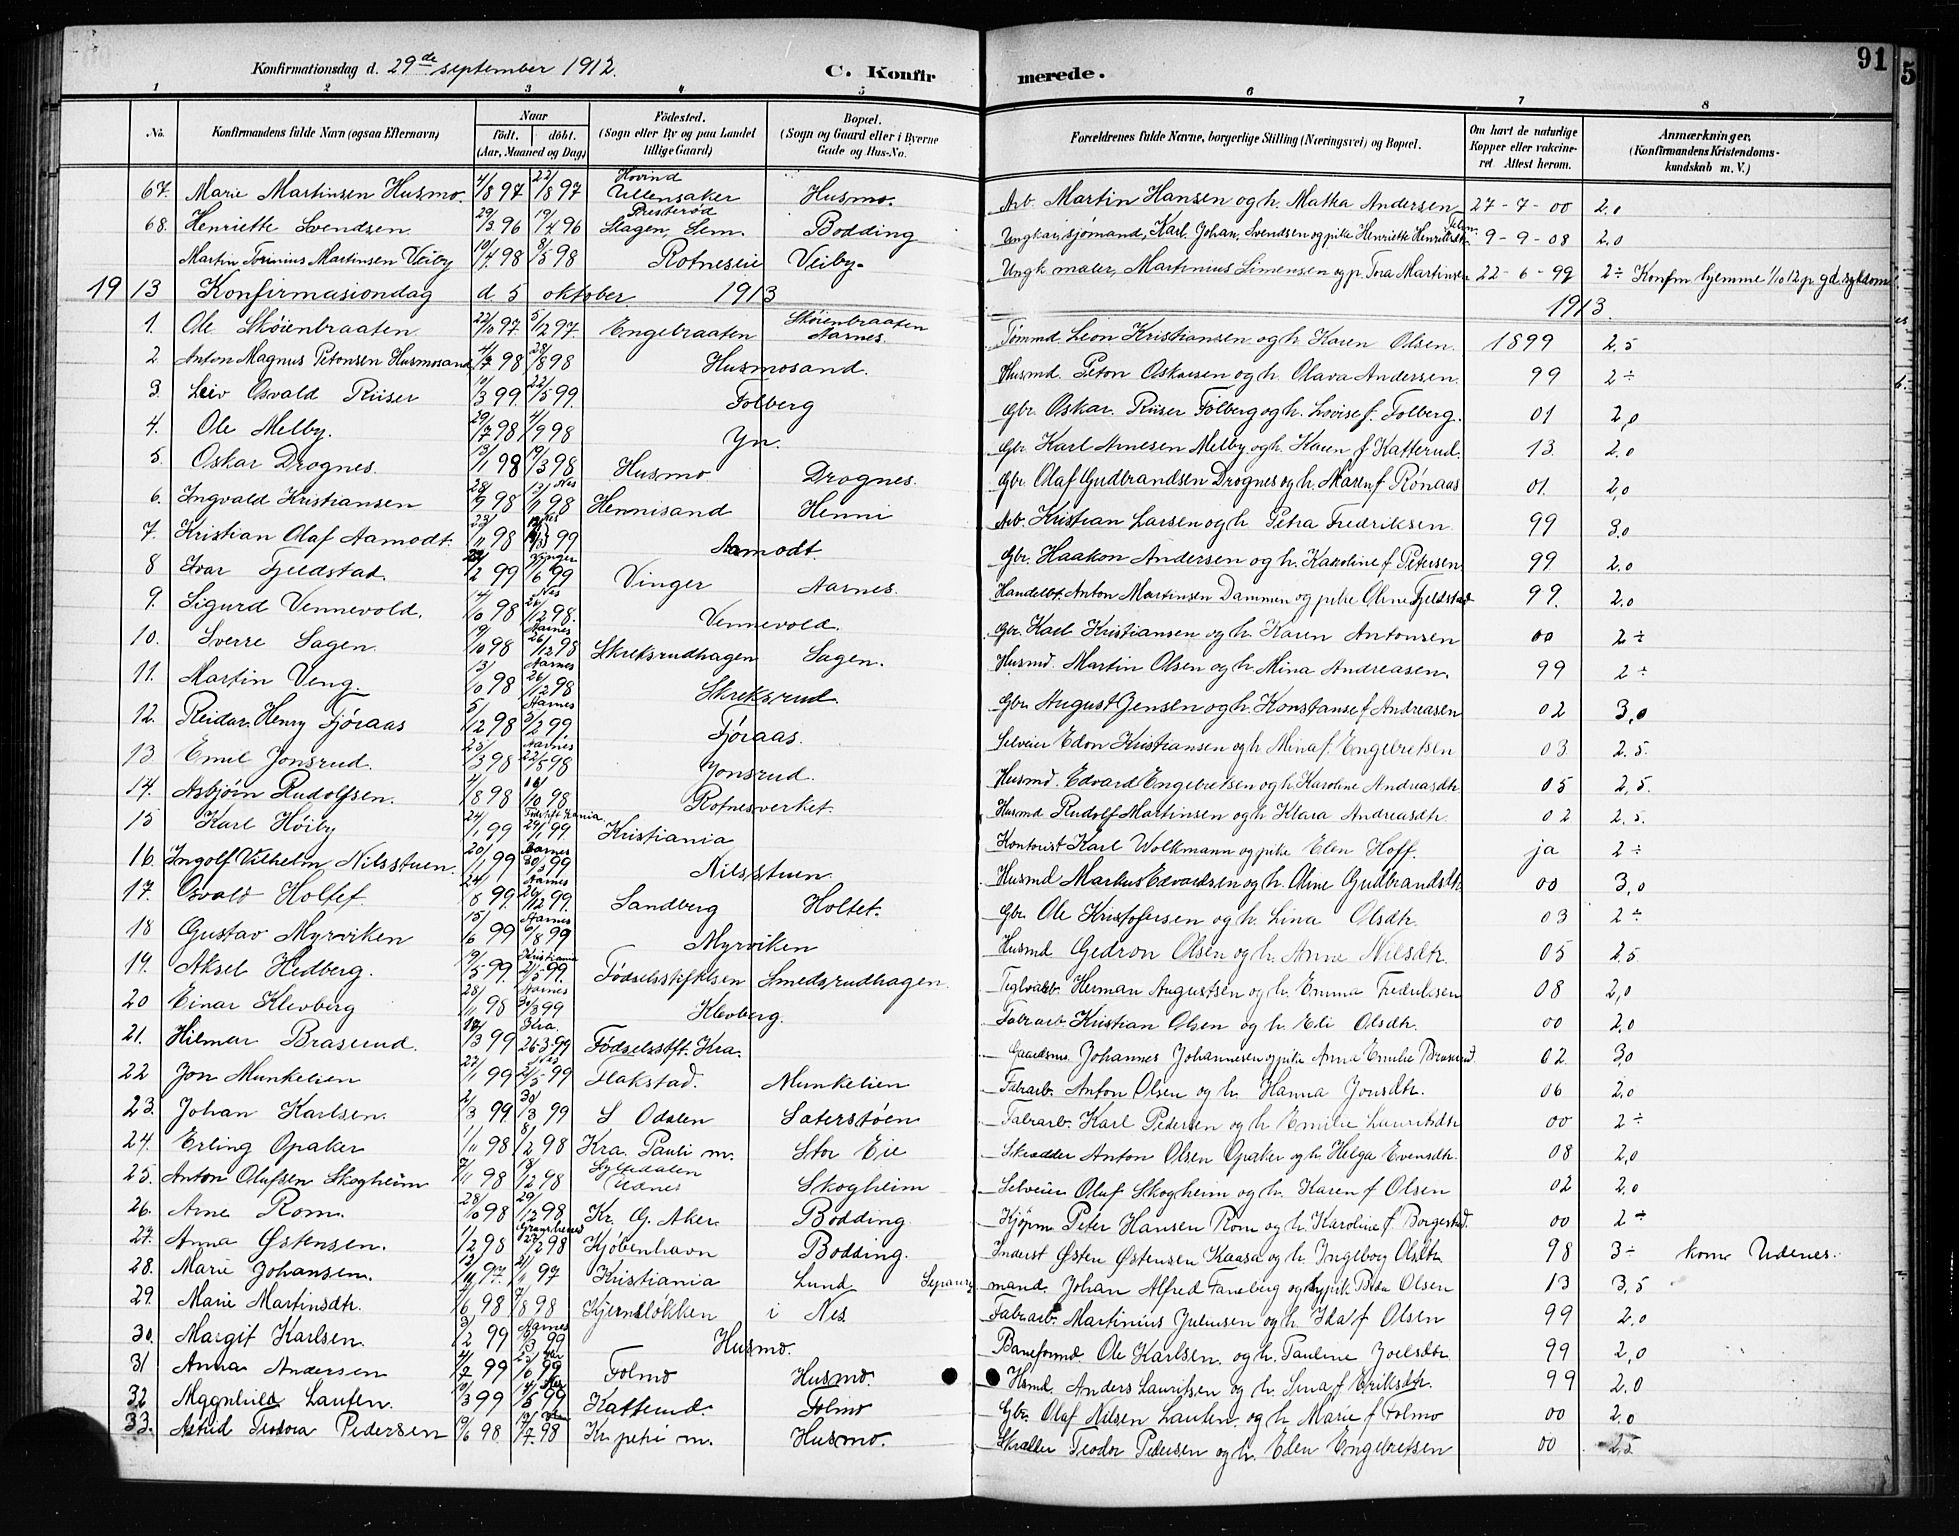 91
Konfirmationsdag d. 29de september 1912.
C. Konfirmerede.
1 2 3 4 5 6 7 8
No.
Konfirmandens fulde Navn (ogsaa Efternavn)
Naar
født. døbt.
(Aar, Maaned og Dag)
Fødested.
(Sogn eller By og paa Landet tillige Gaard)
Bopæl.
(Sogn og Gaard eller i Byerne Gade og Hus-No.
Forældrenes fulde Navne, borgerlige Stilling (Næringsvei) og Bopæl.
Om havt de naturlige Kopper eller vaccineret. Attest herom.
Anmærkninger,
(Konfirmandens Kristendomskundskab m. V.)
67. Marie Martinsen Husmo. 4/8 97 22/8 97 Hovind Ullensaker Husmo. Arb. Martin Hansen og h. Matka Andersen 27-7-00 2,0
68. Henriette Svendsen 29/3 96 19/4 96 Presterød Slagen, Sem. Bodding Ungkar, sjømand, Karl Johan Svendsen og pike Henriette 9-9-08 2,0
Martin Martinsen Veiby 10/4 98 8/5 98 Rotneseie Veiby. Ungk. maler, Martinius Simensen og p. Tora Martinsen 22-6-99 2÷ Konfm hjemme 1/10 12 p. gd. sykdom
1913 Konfirmasiondag d 5 oktober 1913 1913.
1. Ole Skøienbraaten 22/10 97. 5/12 97. Engebraaten Skøienbraaten Aarnes. Tømmd. Leon Kristiansen og h. Karen Olsen. 1899 2,5
2. Anton Magnus Petonsen Husmosand 4/7 98 28/8 98 Husmosand. Husmd. Peton Oskarsen og h. Olava Andersen. 99 2÷
3. Leiv Osvald Riiser 10/3 99. 22/5 99. Folberg Gbr. Oskar Riiser Folberg og h. Lovise f. Folberg. 01 2,0
4. Ole Melby. 29/7 98 4/9 98 Yn. Gbr. Karl Arnesen Melby og h. Karen f. Katterud. 13. 2,0
5. Oskar Drognes. 13/1 98 19/3 98 Husmo Drognes. Gbr. Olaf Gudbrandsen Drognes og h. Maren f. Rønaas 01. 2,0
6. Ingvald Kristiansen 28/9 98 Nes 98 Hennisand Henni Arb. Kristian Larsen og h. Petra Fredriksen. 99 3,0
7. Kristian Olaf Aamodt. 23/11 98 Nes 99 Aamodt. Gbr. Haakon Andersen og h. Karoline f. Petersen 99 2,0
8 Ivar Fjeldstad. 2 99 Vinger /6 99 Vinger Aarnes. Handelbt. Anton Martinsen Dammen og pike Oline Fjeldstad 99. 2,0
9. Sigurd Vennevold. 14/10 98 Nes 26/12 98. Vennevold. Gbr. Karl Kristiansen og h. Karen Antonsen 00 2÷
10. Sverre Sagen 19/10 98 Aarnes 26/12 98 Skreksrudhagen Sagen. Husmd. Martin Olsen og h. Mina Andreasen. 99 2÷
11. Martin Veng. 13/10 98 Aarnes 26/12 98 Skreksrud. Gbr. August Jensen og h. Konstanse f. Andreasen 02 3,0
12. Reidar Henry Fjøraas 5/12 98 Aarnes 3/2 99. Fjøraas. Selveier Edon Kristiansen og h. Mina f. Engebretsen 03 2.5.
13. Emil Jonsrud. 23/3 98 Aarnes 22/5 98 Jonsrud. Husmd. Edvard Engebretsen og h. Karoline Andreasdtr. 05 2,5.
14. Asbjørn Rudolfsen. 21/8 98 16/10 98. Rotnesverket. Husmd Rudolf Martinsen og h. Klara Andreasdtr. 02 2.5.
15 Karl Høiby 24/1 99 29/1 99 Kristiania Kontorist Karl Wolkmann og pike Elen Hoff. ja 2÷
16. Ingolf Vilhelm Nilsstuen. 20/1 99 Aarnes 30/3 99 Nilsstuen. Husmd Markus Edvardsen og h. Oline Gudbrandsdtr 00 3,0
17. Osvald Holtet. 24/8 99. Aarnes 26/12 99. Sandberg Holtet. Gbr. Ole Kristofersen og h. Lina Olsdtr. 03 2÷
18 Gustav Myrviken 15/6 99 Aarnes 6/8 99 Myrviken Husmd Gedron Olsen og h. Anne Nilsdtr. 05 2,5
19. Aksel Hedberg. 19/5 99. Kristiania 5 99. Fødselsstiftelsen Smedsrudhagen Teglvakb. Herman Augustsen og h. Emma Fredriksen 08 2,0
20 Einar Klevberg 28/11 98 Aarnes 3 99 Klevberg. Fabrarb. Kristian Olsen og h. Eli Olsdtr. 00 2,0
21. Hilmar Braserud. /3 99 Kra. 26.3.99 Fødselsstft. Kra. Gaardsms. Johannes Johannesen og pike Anna Emilie Braserud. 02 3,0
22 Jon Munkelien 22/1 99 Nes 2/5 99 Flakstad. Munkelien Fabrarb. Anton Olsen og h. Hanna Jonsdtr. 06 2,0
23. Johan Karlsen. 2/3 99. 30/3 99 S Odalen Saterstøen Fabrarb. Karl Pedersen og h Emilie Lauritsdtr 00 2÷
24. Erling Opaker 1/11 98 8/12 98 Kra. Pauli m. Stor Eie Skrædder Anton Olsen Opaker og h. Helga Evensdtr. 08 2,0
25. Anton Olafsen Skogheim 7/11 98 18/12 98 Udnes Skogheim Selveier Olaf Skogheim og h. Karen f. Olsen 02 2,0
26. Arne Rom. 28/10 98 29/12 98 Kr. G. Aker. Bodding. Kjøpm Peter Hansen Rom og h. Karoline f. Borgestad. 00 2÷
27. Anna Østensen. 1/2 98 /2 98 Kjøbenhavn Bodding. Inderst Østen Østensen Kaasa og h. Ingeborg Olsdtr 98 3÷ kom. Udenes.
28. Marie Johansen. 12/10 97. 21/11 97 Kristiania Lund mand. Johan Alfred og pike Beda Olsen 13 3,5
29. Marie Martinsdtr. 7/6 98 7/8 98 Kjernsløkken i Nes Fabrarb. Martinius Juliusen og h. Ida f Olsen 99 2,0
30. Margit Karlsen. 3/2 99 Aarnes /3 99 Husmo. Baneformd. Ole Karlsen og h. Pauline Joelsdtr 99 2,0
31 Anna Andersen 2/2 99 /6 99 Folmo Husmo. Hsmd. Anders Lauritsen og h. Lina f. Eriksdtr. 99 2,0
32 Magnhild Lauten. 10/3 99 /5 99 Katterud. Folmo Gbr. Olaf Nilsen Lauten og h. Marie f Folmo 00 2,0
33. Astrid Teodora Pedersen 19/6 98 /7 98 Kr. petri m. Husmo. Skræller Teodor Pedersen og h. Elen Engebretsen 00 2,5